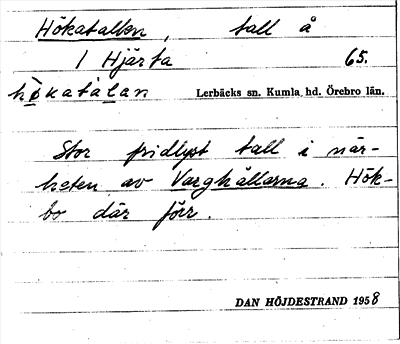 Hökatallen, tall å
1 Hjärta 65.
hökatàlan Lerbäcks sn. Kumla hd. Örebro län.
Stor fridlyst tall i när-
heten av Varghällarna. Hök-
bo där förr.
DAN HÖJDESTRAND 1958